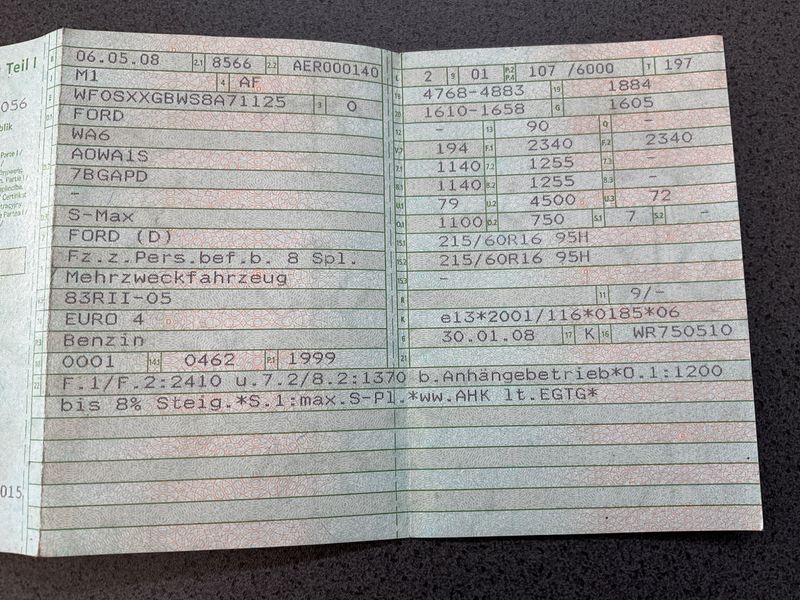 Teil I
06.05.08 2.1 8566 2.2 AER000140 L 2 9 01 P.2 P.4 107 /6000 T 197
M1 4 AF 18 4768-4883 19 1884
WF0SXXGBWS8A71125 3 0 20 1610-1658 G 1605
FORD 12 - 13 90 Q -
WA6 V.7 194 F.1 2340 F.2 2340
A0WA1S 7.1 1140 7.2 1255 7.3 -
7BGAPD 8.1 1140 8.2 1255 8.3 -
- U.1 79 U.2 4500 U.3 72
S-Max O.1 1100 O.2 750 S.1 7 S.2 -
FORD (D) 15.1 215/60R16 95H
Fz.z.Pers.bef.b. 8 Spl. 15.2 215/60R16 95H
Mehrzweckfahrzeug 15.3 -
83RII-05 R 11 9/-
EURO 4 K e13*2001/116*0185*06
Benzin 6 30.01.08 17 K 16 WR750510
10 0001 14.1 0462 P.1 1999 21
22 F.1/F.2:2410 u.7.2/8.2:1370 b.Anhängebetrieb*O.1:1200
bis 8% Steig.*S.1:max.S-Pl.*ww.AHK lt.EGTG*
056
015